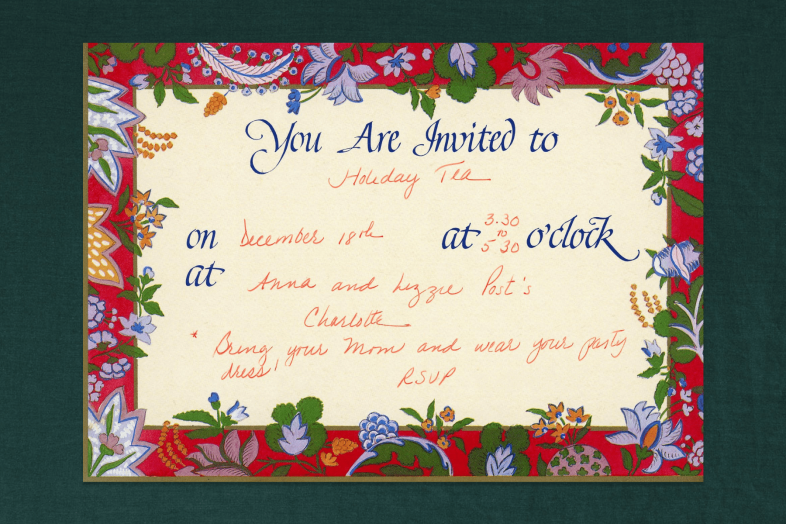 You Are Invited to
Holiday Tea
on December 18th at 3.30 to 5 30 o'clock
at Anna and Lizzie Post's
Charlotte
* Bring your Mom and wear your party
dress! RSVP